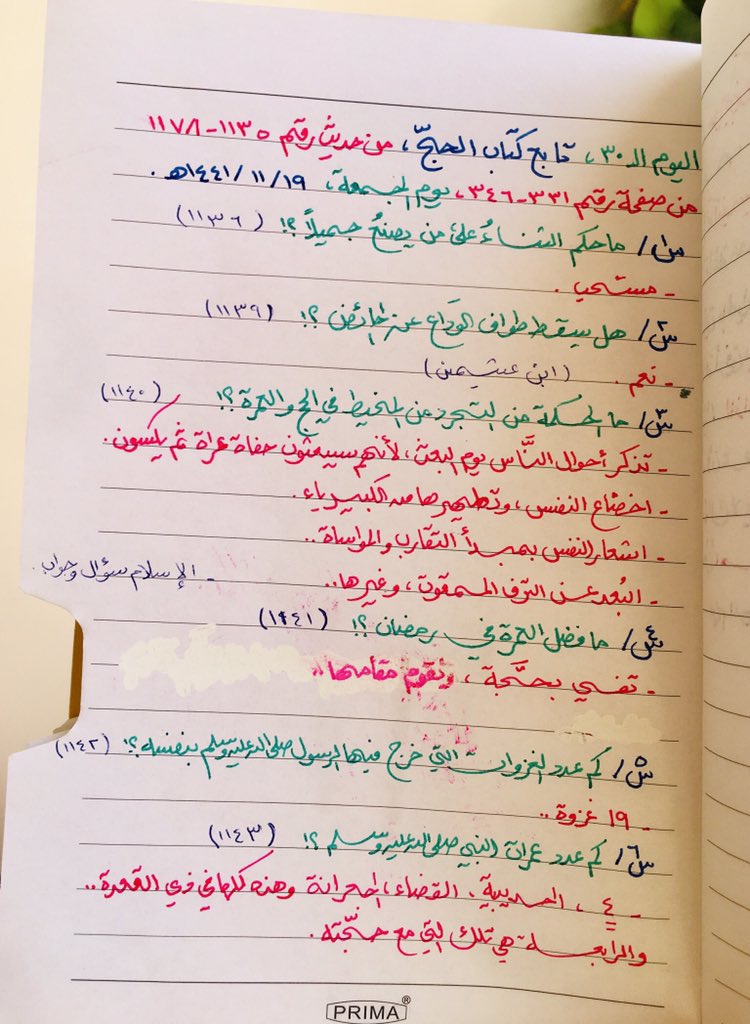 اليوم الـ ٣٠ ، تابع كتاب الحجّ ، من حديث رقم ١١٣٥-١١٧٨
من صفحة رقم ٣٣١-٣٤٦ ، يوم الجمعة ، ١٤٤١/١١/١٩هـ .
س١/ ما حكم الثناءُ على من يصنعُ جميلاً ؟! (١١٣٦)
- مستحب .
س٢/ هل يسقط طواف الوَداع عن الحائض ؟! (١١٣٩)
- نعم . (ابن عثيمين)
س٣/ ما الحكمة من التجرد من المخيط في الحج والعمرة ؟! (١١٤٠)
- تذكر أحوال النَّاس يوم البعث ، لأنهم سيبعثون حفاة عراة ثم يكسون .
- اخضاع النفس ، وتطهيرها من الكبرياء .
- اشعار النفس بمبدأ التقارب والمواساة ..
- البُعد عن الترف الممقوت ، وغيرها .. - الإسلام سؤال وجواب .
س٤/ ما فضل العمرة في رمضان ؟! (١١٤١)
- تقضي بحَجَّة ، وتقوم مقامها ..
س٥/ كم عدد الغزوات التي خرج فيها الرسول صلى الله عليه وسلم بنفسه ؟! (١١٤٢)
- ١٩ غزوة ..
س٦/ كم عدد عمرات النبي صلى الله عليه وسلم ؟! (١١٤٣)
- ٤ ، الحديبية ، القضاء ، الجعرانة وهذه كلها في ذي القعدة ..
والرابعة هي تلك التي مع حجّته .
PRIMA®